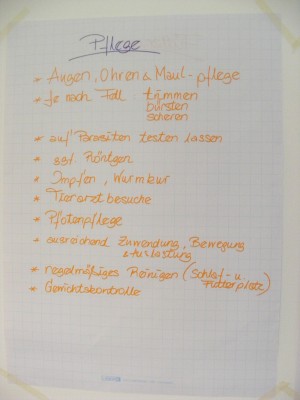 Pflege
* Augen, Ohren & Maul-pflege
* Je nach Fell: trimmen
bürsten
scheren
* auf Parasiten testen lassen
* ggf. Röntgen
* Impfen, Wurmkur
* Tierarztbesuche
* Pfotenpflege
* ausreichend Zuwendung, Bewegung
& Auslastung
* regelmäßiges Reinigen (Schlaf- u.
Futterplatz)
* Gewichtskontrolle